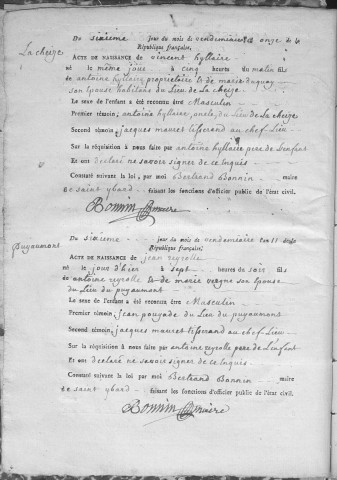 Du sixième jour du mois de vendemiaire an onze de la
La cheize
République française,
ACTE DE NAISSANCE de vincent hyllaire
né le même jour à cinq heures du matin fils
de antoine hyllaire propriétaire & de marie duguay
son épouse habitans du Lieu de La cheize
Le sexe de l'enfant a été reconnu être Masculin
Premier témoin, antoine hyllaire, oncle, du Lieu de La cheize
Second témoin, jacques mauret tisserand au chef Lieu
Sur la réquisition à nous faite par antoine hyllaire pere de Lenfant
Et ont declaré ne savoir signer de ce Inquis
Constaté suivant la loi, par moi Bertrand Bonnin maire
de saint ybard faisant les fonctions d'officier public de l'état civil.
Bonnin maire
Puyaumont
Du sixième jour du mois de vendemiaire l'an 11 de la
République française,
ACTE DE NAISSANCE de jean reyrolle
né le jour d'hier à sept heures du soir fils
de antoine reyrolle & de marie vergne son épouse
du Lieu du puyaumont
Le sexe de l'enfant a été reconnu être Masculin
Premier témoin, jean pouyade du Lieu du puyaumont
Second témoin, jacques mauret tisserand au chef Lieu
Sur la réquisition à nous faite par antoine reyrolle pere de Lenfant
Et ont declaré ne savoir signer de ce Inquis
Constaté suivant la loi, par moi Bertrand Bonnin maire
de saint ybard faisant les fonctions d'officier public de l'état civil.
Bonnin maire